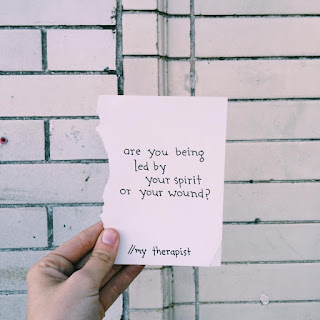 are you being
led by
your spirit
or your wound?
//my therapist